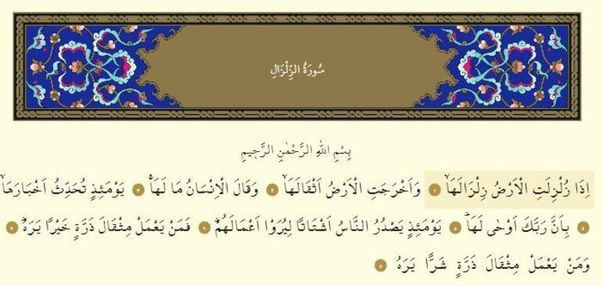 سُورَةُ الزِّلْزَالِ
بِسْمِ اللهِ الرَّحْمٰنِ الرَّحٖيمِ
اِذَا زُلْزِلَتِ الْاَرْضُ زِلْزَالَهَاۙ ١ وَاَخْرَجَتِ الْاَرْضُ اَثْقَالَهَاۙ ٢ وَقَالَ الْاِنْسَانُ مَا لَهَاۚ ٣ يَوْمَئِذٍ تُحَدِّثُ اَخْبَارَهَاۙ ٤
بِاَنَّ رَبَّكَ اَوْحٰى لَهَاؕ ٥ يَوْمَئِذٍ يَصْدُرُ النَّاسُ اَشْتَاتًا لِيُرَوْا اَعْمَالَهُمْؕ ٦ فَمَنْ يَعْمَلْ مِثْقَالَ ذَرَّةٍ خَيْرًا يَرَهُؕ ٧
وَمَنْ يَعْمَلْ مِثْقَالَ ذَرَّةٍ شَرًّا يَرَهُ ٨